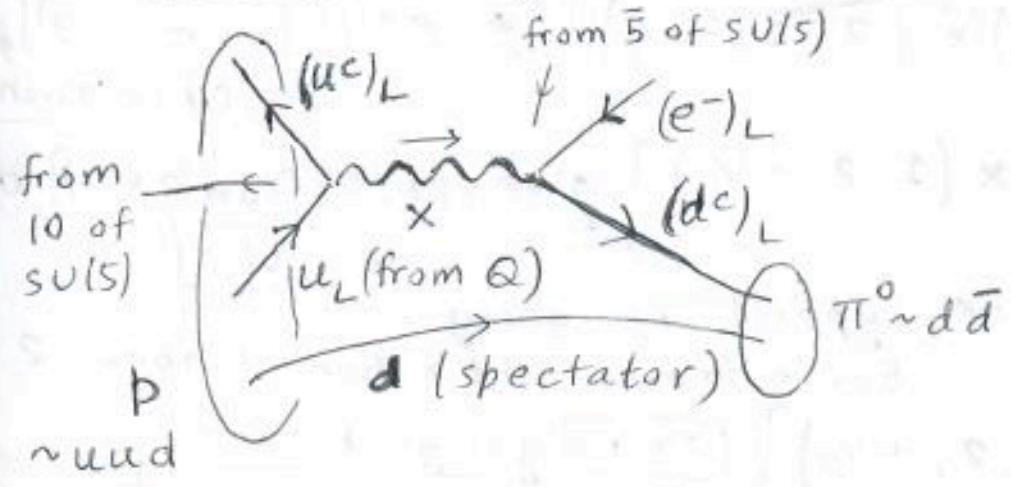 from 5̄ of SU(5)
(uᶜ)_L
(e⁻)_L
from
10 of
SU(5)
X
(dᶜ)_L
u_L (from Q)
π⁰ ~ d d̄
d (spectator)
p
~uud